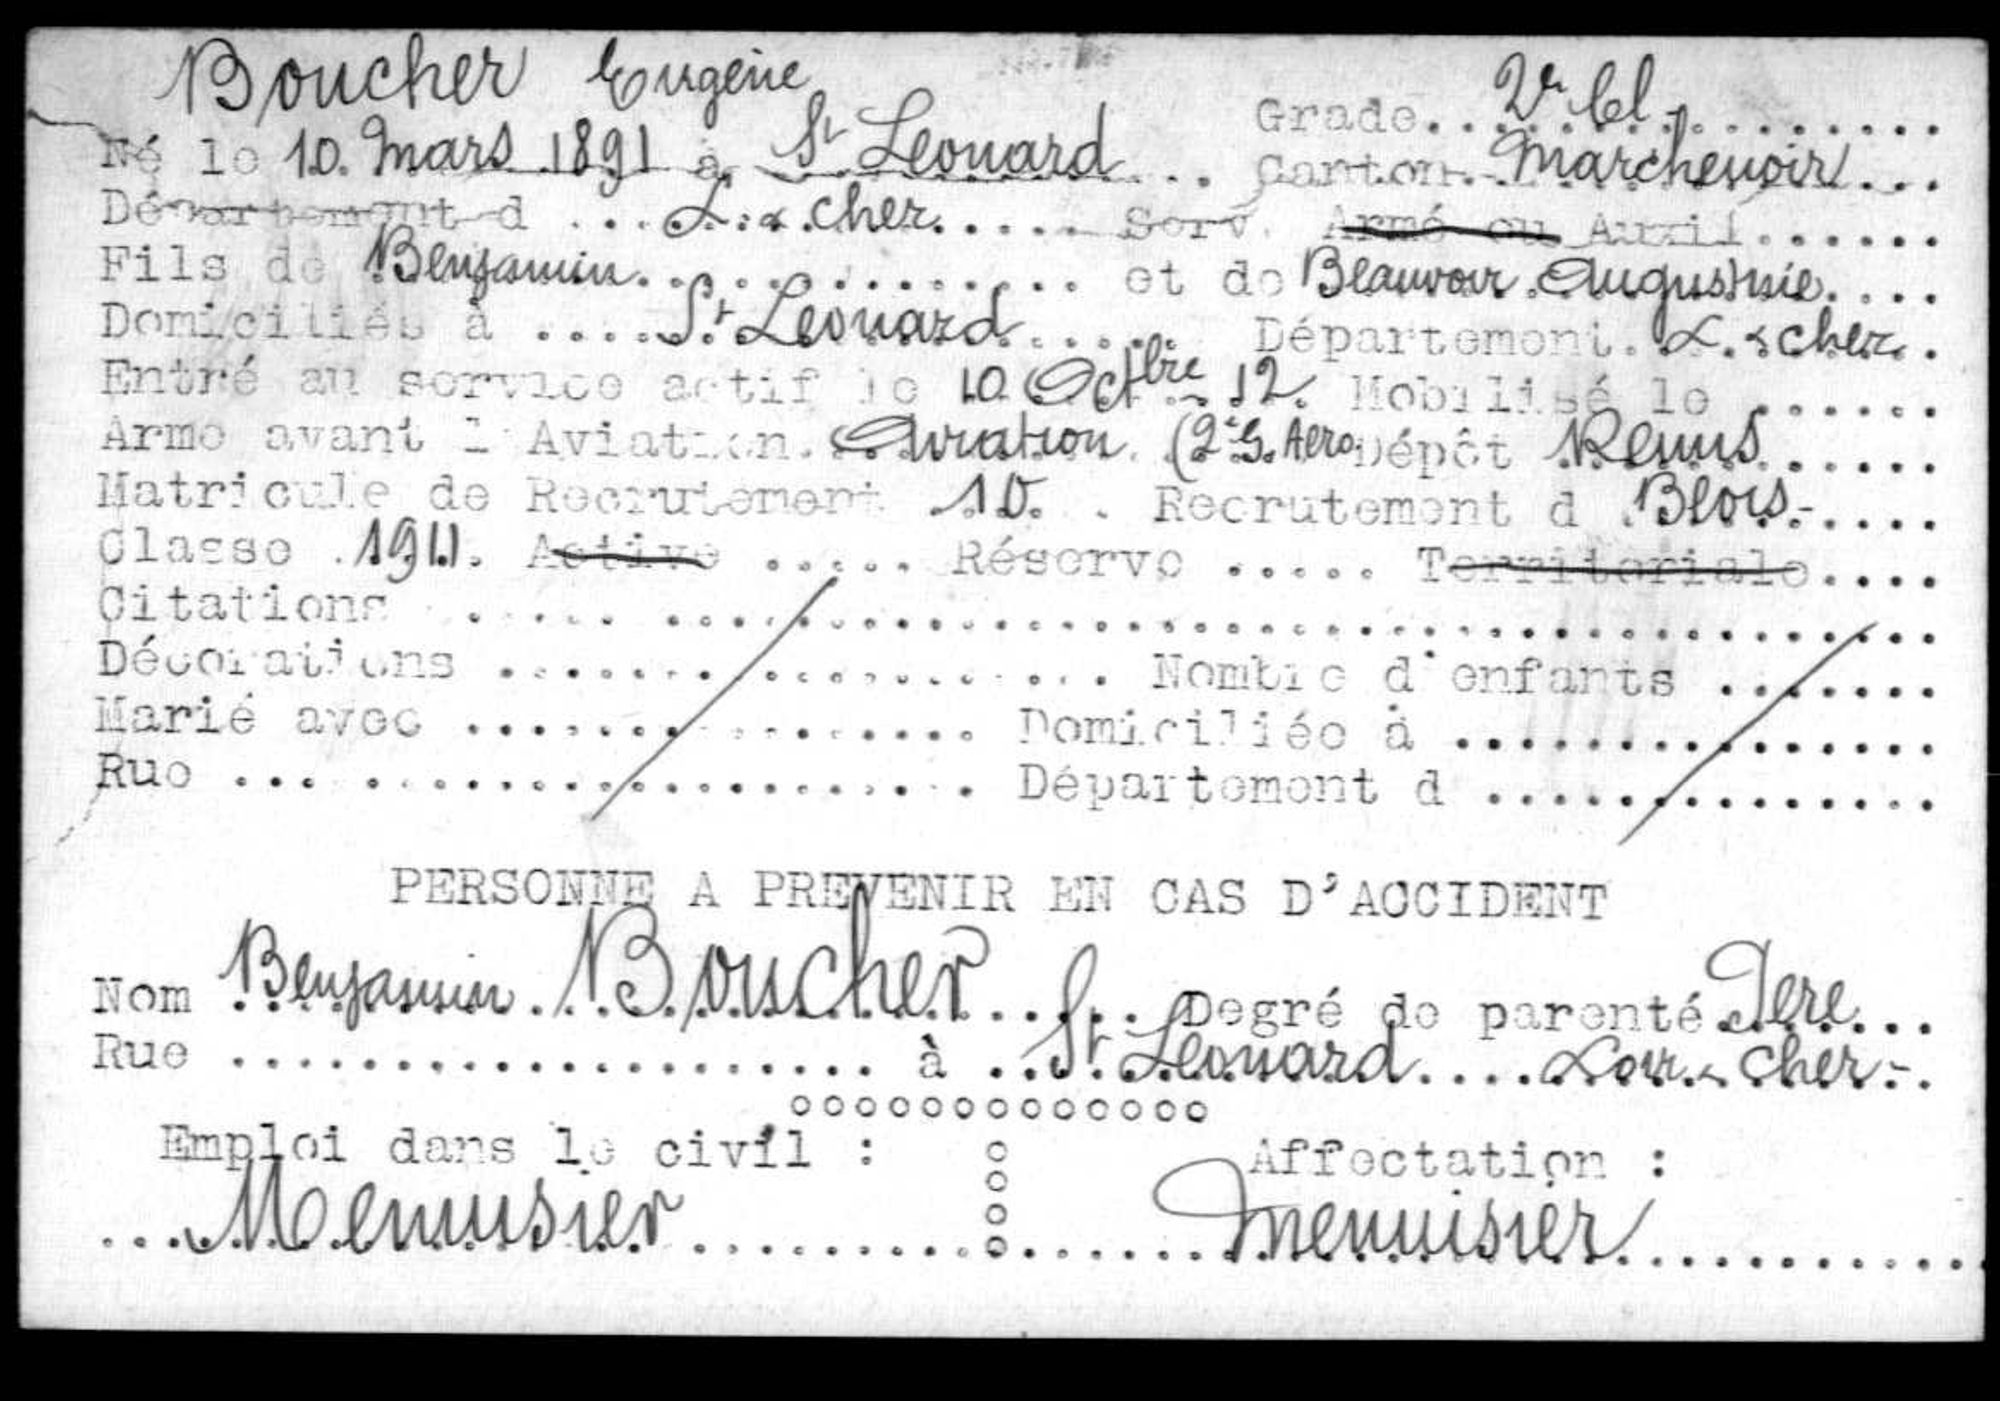 Boucher Eugène
Grade. 2e Cl.
Né le 10 Mars 1891 à St Leonard Canton Marchenoir
Département d L. & cher Serv. Armé ou Auxil.
Fils de Benjamin et de Beauvoir Augustine
Domiciliés à St Leonard Département L. & cher
Entré au service actif le 10 Octbre 12 Mobilisé le
Arme avant l'Aviation. Aviation (2e G. Aero Dépôt Reims
Matricule de Recrutement 10 Recrutement d Blois
Classe 1911 Active Réserve Territoriale
Citations
Décorations Nombre d'enfants
Marié avec Domiciliée à
Rue Département d
PERSONNE A PREVENIR EN CAS D'ACCIDENT
Nom Benjamin Boucher Degré de parenté Père
Rue à St Leonard Loir & cher
Emploi dans le civil : Affectation :
Menuisier Menuisier